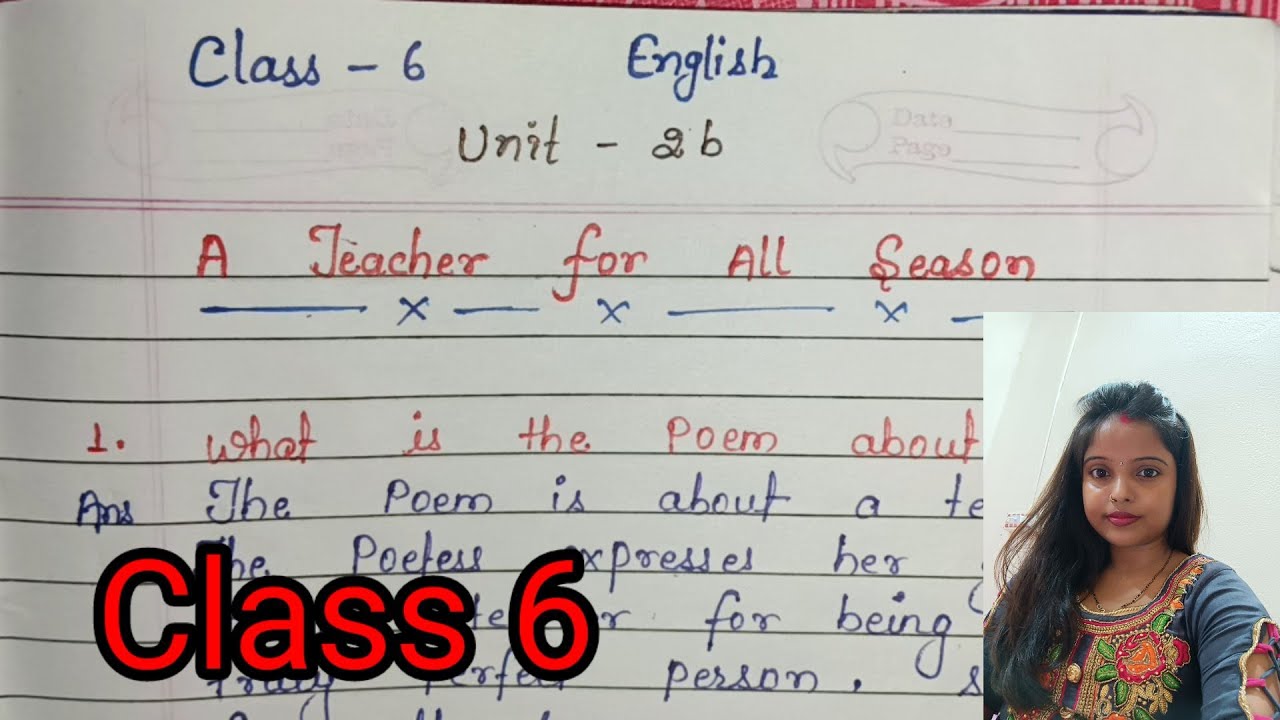 Class - 6 English
Data
Page
Unit - 2b
A Teacher for All Season
1. What is the Poem about
Ans The Poem is about a te
The Poetess expresses her
for being
Truly perfect person.
Class 6